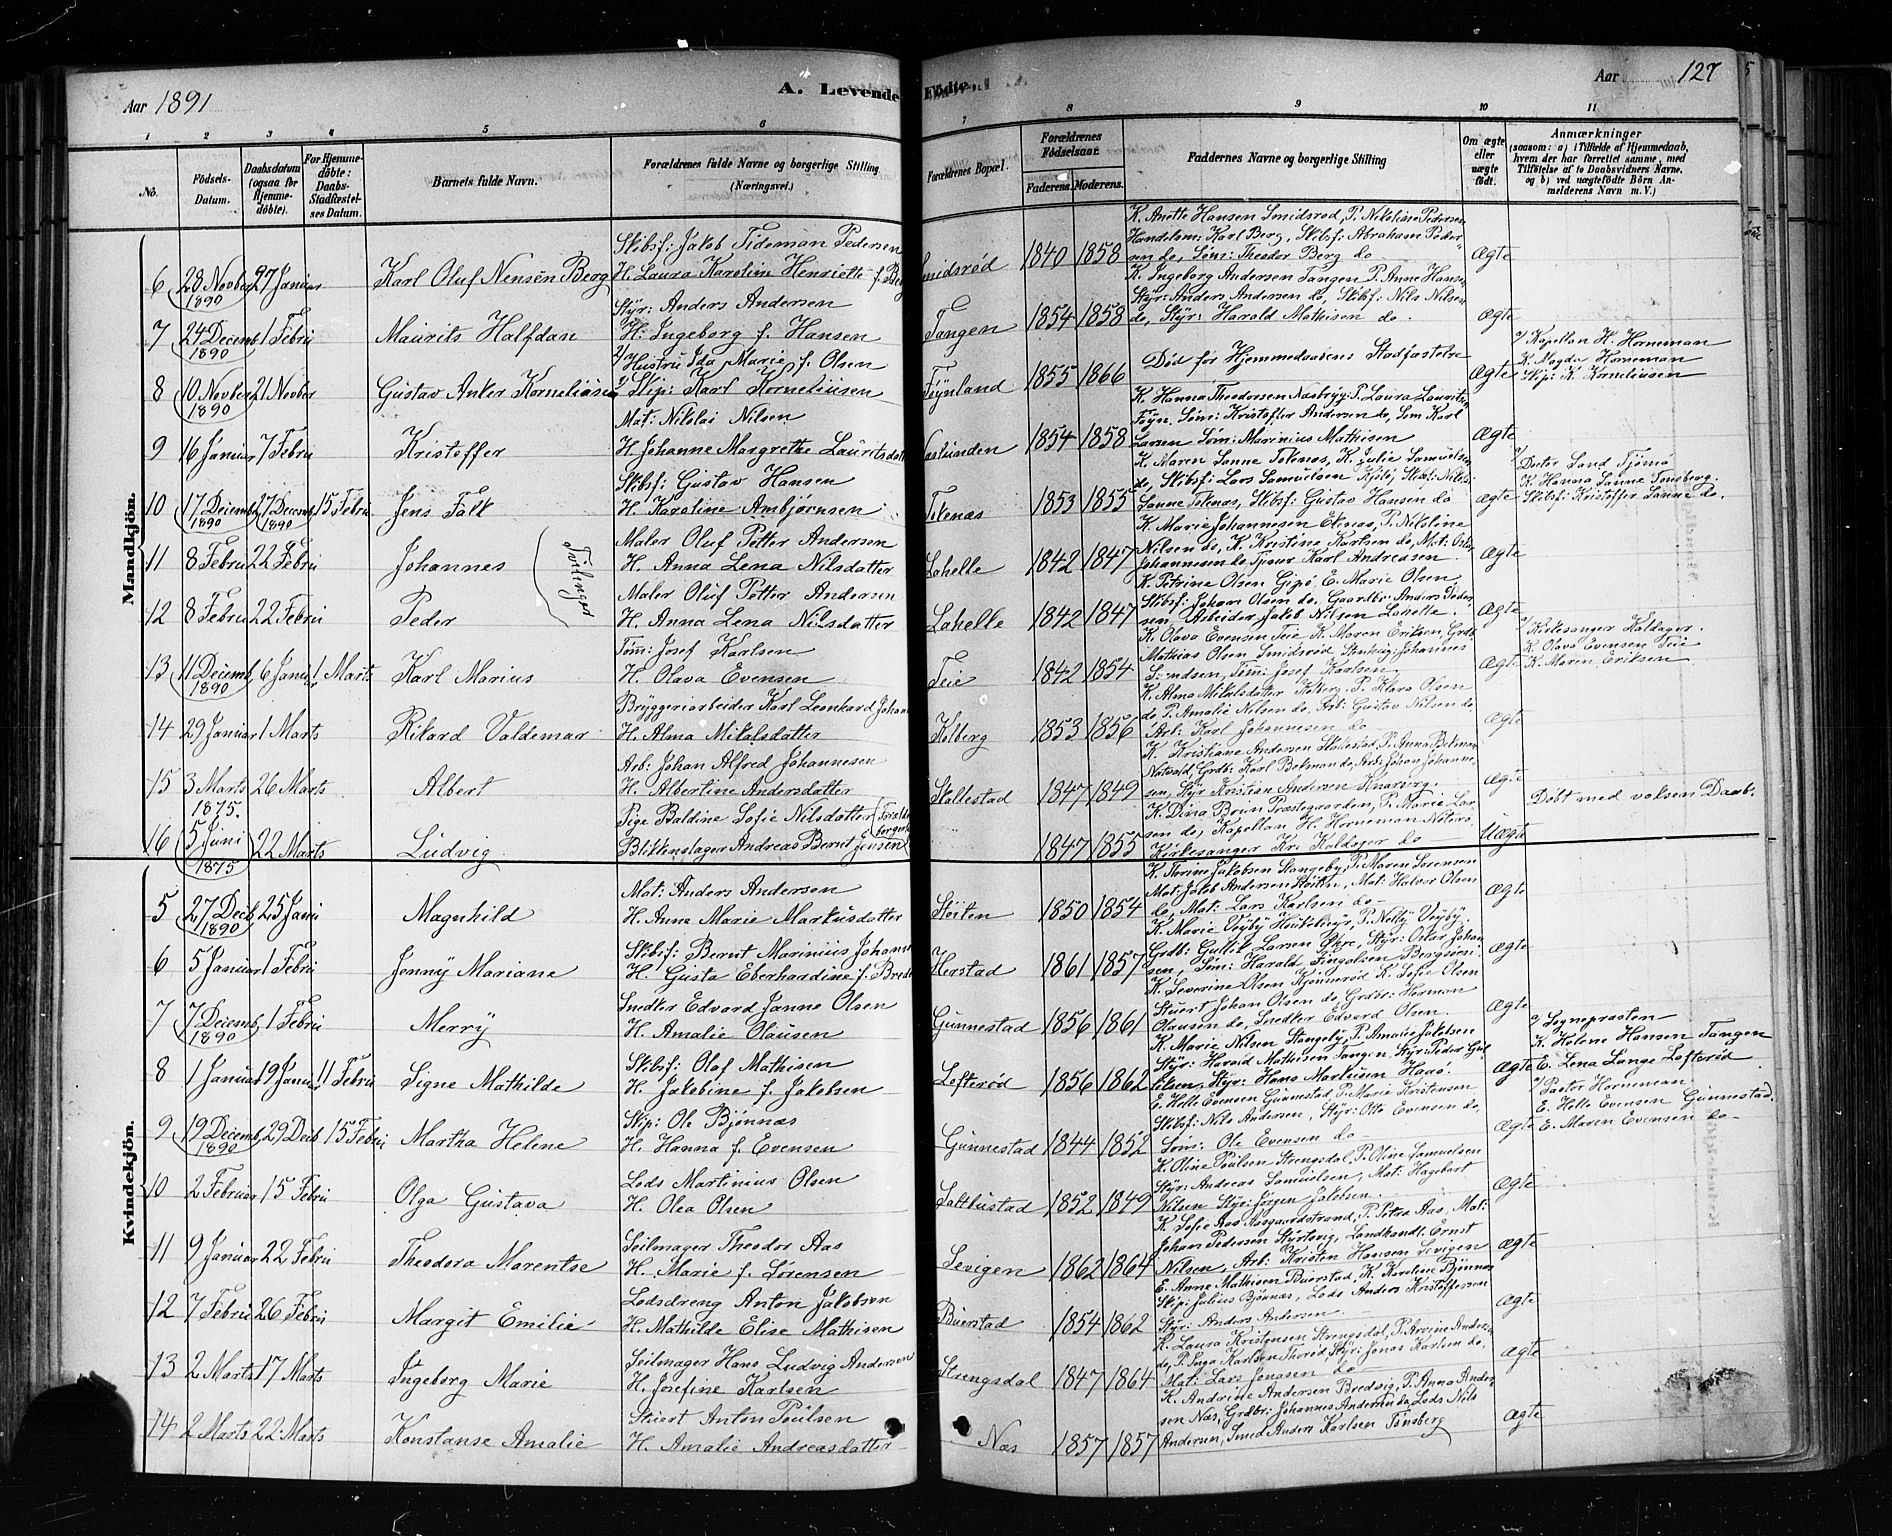 Aar 1891
A. Levende Födte.
Aar 127
1 2 3 4 5 6 7 8 9 10 11
No.
Födsels-Datum.
Daabsdatum (ogsaa for Hjemme-döbte).
For Hjemme-döbte: Daabs-Stadfæstel-ses Datum.
Barnets fulde Navn.
Forældrenes fulde Navne og borgerlige Stilling (Næringsvei.)
Forældrenes Bopæl.
Forældrenes Födselsaar.
Faderens. Moderens.
Faddernes Navne og borgerlige Stilling
Om ægte eller uægte födt.
Anmærkninger
(saasom: a) i Tilfælde af Hjemmedaab, hvem der har forrettet samme, med Tilföielse af to Daabsvidners Navne, og b) ved uægtefödte Börn An-melderens Navn m. V.)
Mandkjön.
6 28 Novber 1890 27 Januar Karl Oluf Nensen Berg
Skibsf: Jakob Tideman Pedersen
H. Laura Karoline Henriette f. Berg
Smidsrød 1840 1858
K. Anette Hansen Smidsrød, P. Nikoline Pedersen
Handelsm: Karl Berg, Skibsf: Abraham Peder-
sen do, Søm: Theodor Berg do
Ægte
7 24 Decemb 1890 1 Febru Maurits Halfdan
Styr: Anders Andersen
H. Ingeborg f. Hansen
Tangen 1854 1858
K. Ingeborg Andersen Tangen P. Anne Hansen
Styr: Anders Andersen do, Skibsf: Nils Nilsen
do, Styr: Harald Mathisen do.
Ægte
8 10 Novber 1890 21 Novber Gustav Anker Korneliusen
Hustru Ida Marie f. Olsen
Skip: Karl Korneliusen
Føynland 1855 1866
Død før Hjemmedaabens Stadfæstelse
Ægte
Kapellan H. Horneman
K. Magda Horneman
Skip: K. Korneliusen
9 16 Januar 7 Febru Kristoffer
Mat: Nikolai Nilsen
H. Johanne Margrethe Lauritsdatter
1854 1858
K. Hanna Theodorsen Næsbryg. P. Laura Lauritsen
Føyn, Søm: Kristoffer Andersen do, Søm Karl
Larsen Søm: Marinius Mathisen
Ægte
10 17 Decemb 1890 27 Decemb 1890 15 Febru Jens Falk
Skibsf: Gustav Hansen
H. Karoline Ambjørnsen
Tokenæs 1853 1855
K. Maren Sanne Tokenæs, K. Julie Samuelsen
do, Skibsf: Lars Samuelsen
Sanne Tokenæs, Skibsf: Gustav Hansen do
Ægte
K. Hanna Sanne Tønsberg.
Skibsf: Kristoffer Sanne do.
11 8 Febru 22 Febru Johannes
Tvilinger
Maler Oluf Petter Andersen
H. Anna Lena Nilsdatter
Lahelle 1842 1847
K. Marie Johannesen Ekenæs, P. Nikoline
Nilsen do, K. Kristine Karlsen do, Mat: Oskar
Johannesen do, Tjener Karl Andreasen
Ægte
12 8 Febru 22 Febru Peder
Maler Oluf Petter Andersen
H. Anna Lena Nilsdatter
Lahelle 1842 1847
K. Petrine Olsen Gipø E. Marie Olsen
Skibsf: Johan Olsen do, Gaardbr: Anders Peder-
sen, Arbeider Jakob Nilsen Lahelle.
Ægte
13 11 Decemb 1890 6 Januar 1 Marts Karl Marius
Tøm: Josef Karlsen
H. Olava Evensen
Teie 1842 1854
K. Olava Evensen Teie K. Maren Eriksen, Grdb:
Mathias Olsen Smidsrød, Johannes
Tøm: Josef Karlsen
Ægte
Kirkesanger Kaldager.
K. Olava Evensen Teie
K. Maren Eriksen
14 29 Januar 1 Marts Rikard Valdemar
Bryggeriarbeider Karl Leonhard Johan
H. Alma Mikalsdatter
Kolberg 1853 1856
K. Alma Mikalsdatter Kolberg, P. Klara Olsen
do P. Amalie Nilsen do, Arb: Gustav Nilsen do
Arb: Karl Johannesen do
Ægte
15 3 Marts 26 Marts Albert
Arb: Johan Alfred Johannesen
H. Albertine Andersdatter
Skallestad 1847 1849
K. Kristiane Andersen Skallestad, P. Anna Bekman
Grdb: Karl Bekman do, Arb: Johan Johanne-
sen, Styr Kristian Andersen Knarberg.
Ægte
16 1875. 5 Juni 1875 22 Marts Ludvig
Pige Baldine Sofie Nilsdatter
Blikkenslager Andreas Bernt Jensen
1847 1855
K. Dina Bruun Præstegaarden, P. Marie Lar-
sen do, Kapellan H. Horneman Nøterø
Kirkesanger Kr. Kaldager do
Uægte
Døbt med voksen Daab.
Kvindekjön.
5 27 Decb 1890 25 Janu Magnhild
Mat: Anders Andersen
H. Anne Marie Markusdatter
Støiten 1850 1854
K. Thrine Jakobsen Stangeby, P. Maren Sørensen
Mat: Jakob Andersen Støiten, Mat: Halvor Olsen
do, Mat: Lars Karlsen do
Ægte
6 5 Januar 1 Febru Jenny Mariane
Skibsf: Bernt Marinius Johann
H. Gusta Eberhardine f. Bred
Herstad 1861 1857
K. Marie Veyby P. Nelly Veyby.
Grdb: Gullik Larsen Økre, Styr: Oskar Johan-
sen, Søm: Harald Fingalsen
Ægte
7 7 Decemb 1890 1 Febru Merry
Snedker Edvard Janne Olsen
H. Amalie Olausen
Gunnestad 1856 1861
K. Severine Olsen Kjønnerød K. Sofie Olsen
Stuert Johan Olsen do, Grdbr: Herman
Olausen do, Snedker Edvard Olsen.
Ægte
8 1 Januar 19 Januar 11 Febru Signe Mathilde
Skibsf: Olaf Mathisen
H. Jakobine f. Jakobsen
Lofterød 1856 1862
K. Marie Nilsen Stangeby, P. Amalie Jakobsen
Styr: Harald Mathisen Tangen, Styr: Peder Gul-
liksen, Styr: Hans Markusen Harø.
Ægte
Sognepræsten
K. Helene Hansen Tangen
E. Lena Lange Lofterød
9 19 Decemb 1890 29 Decb 15 Febru Martha Helene
Skip: Ole Bjønnæs
H. Hanna f. Evensen
Gunnestad 1844 1852
E. Helle Evensen Gunnestad, P. Marie Kristensen
Skibsf: Nils Andersen, Styr: Otto Evensen do,
Søm: Ole Evensen do
Ægte
Pastor Horneman.
E. Helle Evensen Gunnestad.
E. Maren Evensen do
10 2 Februar 15 Febru Olga Gustava
Lods Martinius Olsen
H. Olea Olsen
Saltbustad 1852 1849
K. Oline Poulsen Strengsdal, P. Oline Samuelsen
Styr: Andreas Samuelsen, Mat: Hagbart
Nilsen Styr: Jørgen Jakobsen.
Ægte
11 9 Januar 22 Febru Theodora Marentse
Seilmager Theodor Aas
H. Marie f. Sørensen
Sevigen 1862 1864
K. Sofie Aas Aasgaardstrand, P. Petra Aas, Mat:
Johan Pedersen Landhandl. Ernst
Nilsen, Arb: Kristen Hansen Sevigen
Ægte
12 7 Febru 26 Febru Margit Emilie
Lodsdreng Anton Jakobsen
H. Mathilde Elise Mathisen
Buerstad 1854 1862
E. Anne Mathisen Buerstad, K. Karoline Bjønnæs
Skip: Julius Bjønnæs, Lods Anders Kristoffersen
Styr: Anders Andersen.
Ægte
13 2 Marts 17 Marts Ingeborg Marie
Seilmager Hans Ludvig Andersen
H. Josefine Karlsen
Strengsdal 1847 1864
K. Laura Kristensen Strengsdal, P. Arvine Anders
do, P. Inga Karlsen Thorød, Styr: Jonas Karlsen do.
Mat: Lars Jonasen do
Ægte
14 2 Marts 22 Marts Konstanse Amalie
Stuert Anton Poulsen
H. Amalie Andreasdatter
Næs 1857 1857
K. Andrine Andersen Bredvig, P. Anna Ander-
sen Næs, Grdbr: Johannes Andersen do, Lods Nils
Andersen, Smed Anders Karlsen Tønsberg
Ægte